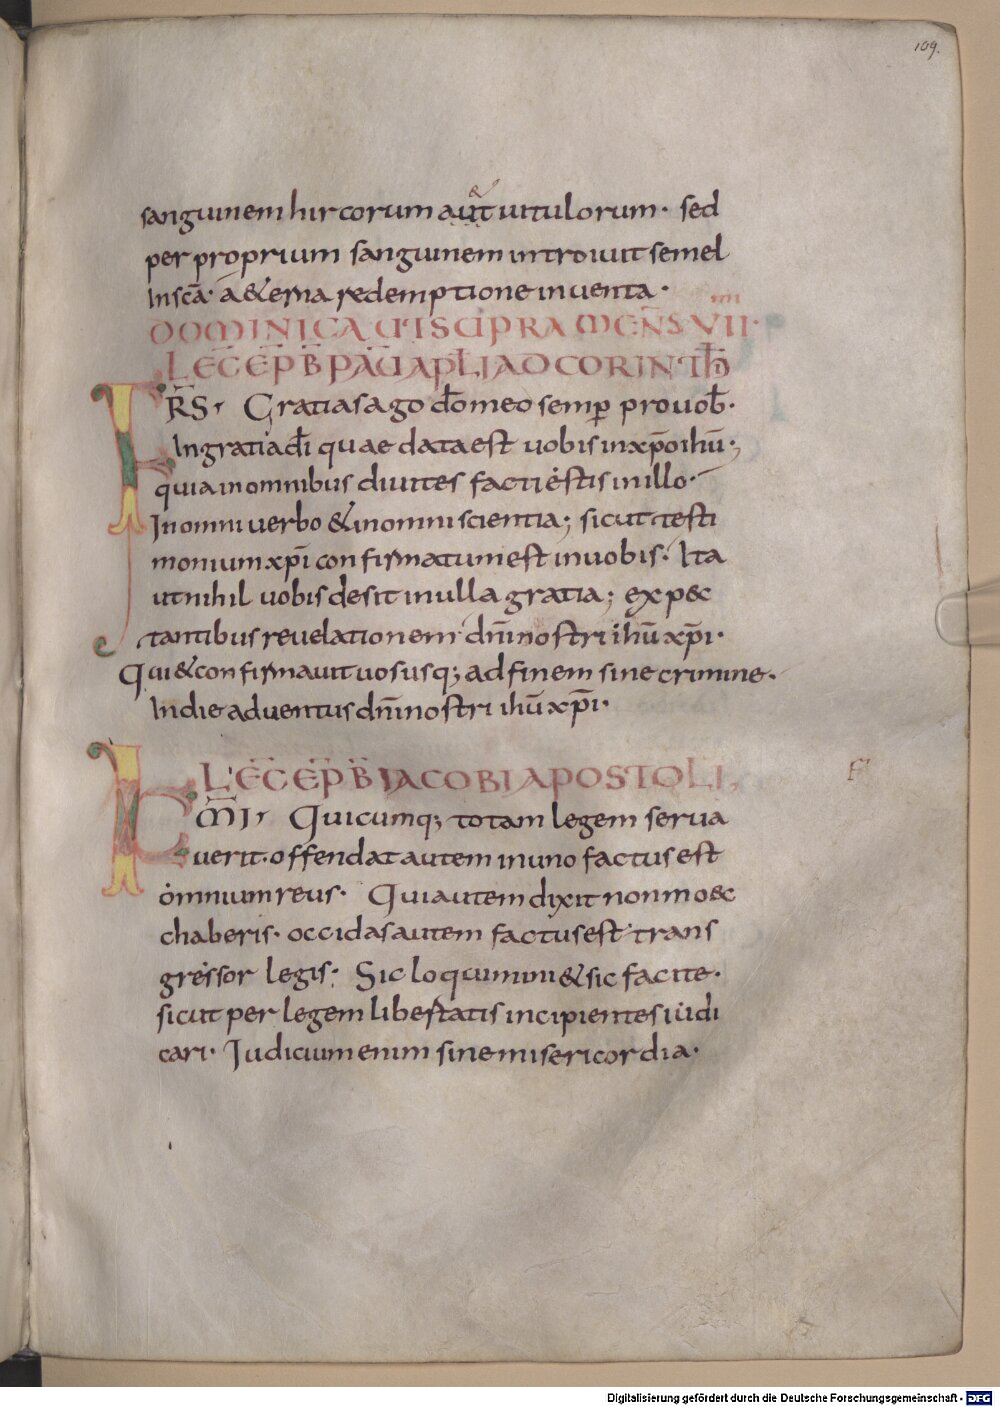 109.
sanguinem hircorum aut & uitulorum· sed
per proprium sanguinem introiuit semel
In scā· a&erna redemptione inuenta·
DOMINICA UT SUPRA MEN̄S VII·
LEC̄ EP̄ B̄ PAŪ APL̄I AD CORINTH̄
FR̄S· Gratias ago dō meo semp̄ pro uob̄·
In gratia dī quae data est uobis in xp̄o ihū;
quia in omnibus diuites facti estis in illo·
In omni uerbo & in omni scientia; sicut testi
monium xp̄i confirmatum est in uobis· Ita
ut nihil uobis desit in ulla gratia; expec
tantibus reuelationem dn̄i nostri ihū xp̄i·
Qui & confirmauit uos usq; ad finem sine crimine·
In die aduentus dn̄i nostri ihū xp̄i·
LEC̄ EP̄ B̄ IACOBI APOSTOLI,
F
KM̄I· Quicumq; totam legem serua
uerit· offendat autem in uno factus est
omnium reus· Qui autem dixit non moec
chaberis· occidas autem factus est trans
gressor legis· Sic loquimini & sic facite·
sicut per legem libertatis incipientes iudi
cari· Iudicium enim sine misericordia·
Digitalisierung gefördert durch die Deutsche Forschungsgemeinschaft - DFG